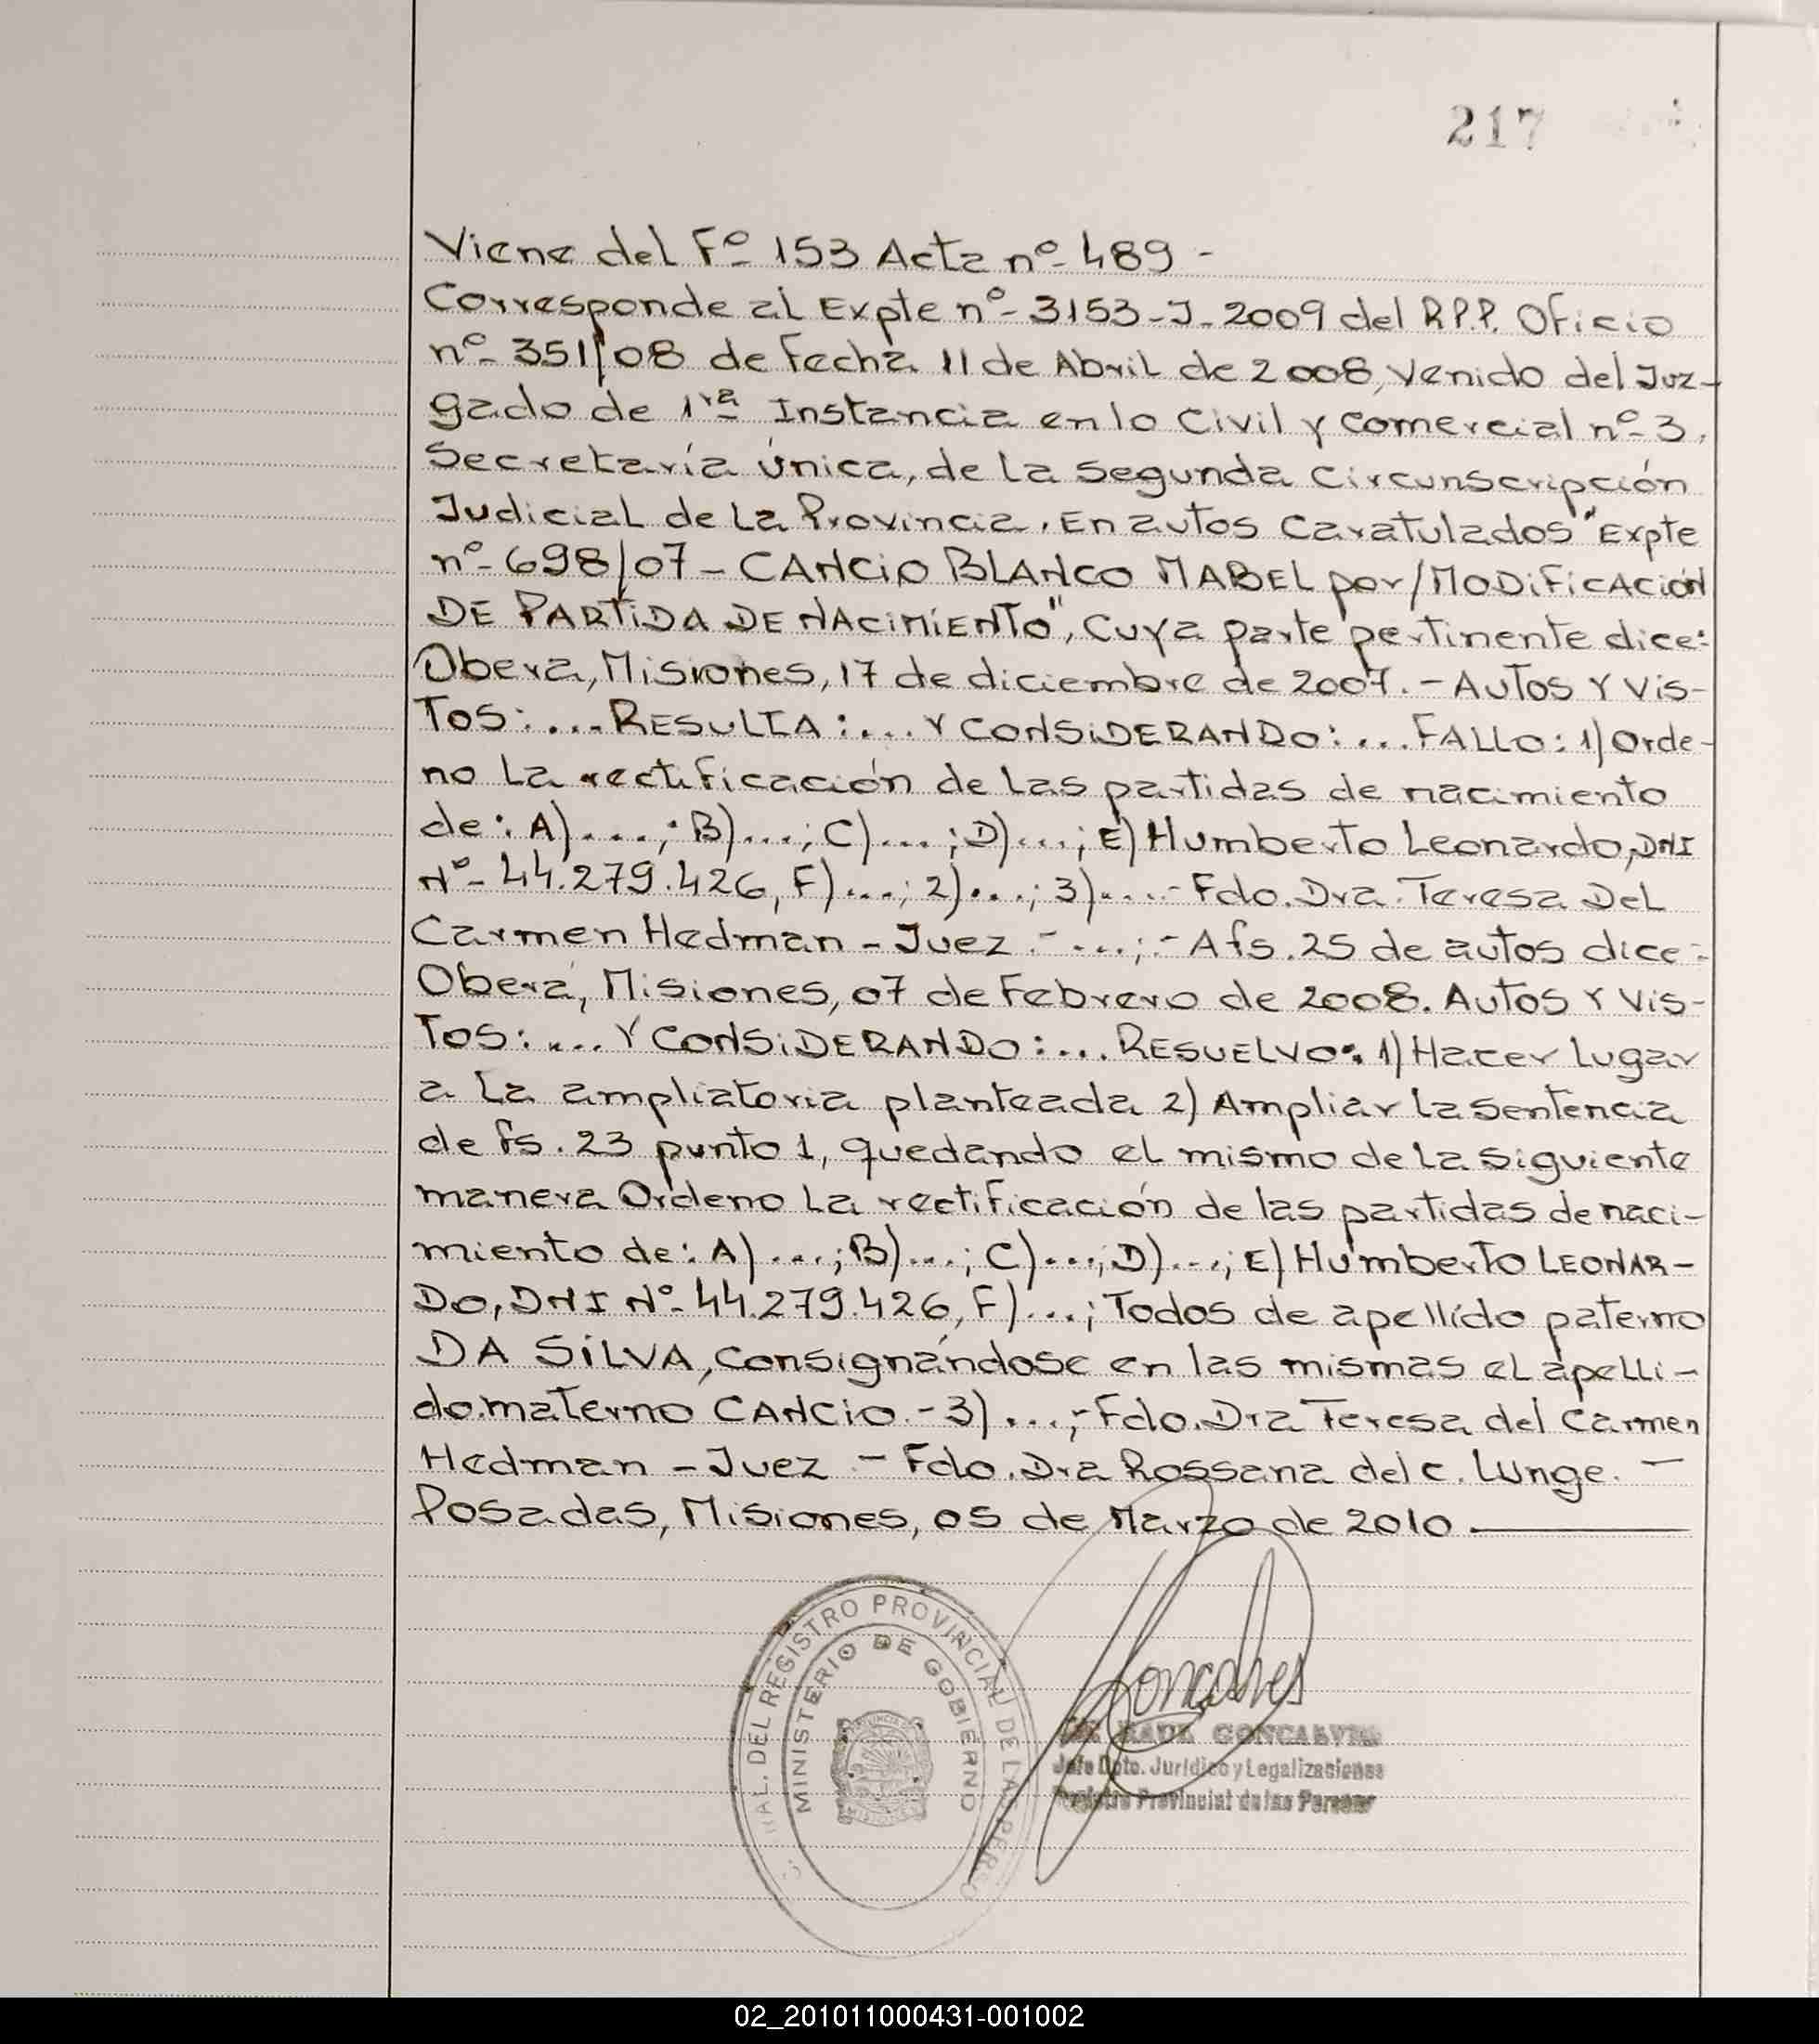 217
Viene del Fº 153 Acta nº 489 -
Corresponde al Expte nº- 3153-J-2009 del R.P.P. Oficio
nº- 351/08 de Fecha 11 de Abril de 2008, Venido del Juz-
gado de 1ra Instancia en lo Civil y Comercial nº- 3,
Secretaría única, de la Segunda Circunscripción
Judicial de La Provincia. En autos Caratulados "Expte
nº- 698/07 - CANCIO BLANCO MABEL por/MODIFICACIÓN
DE PARTIDA DE NACIMIENTO", Cuya parte pertinente dice:
Obera, Misiones, 17 de diciembre de 2007. - Autos Y Vis-
Tos: ... RESULTA: ... Y CONSIDERANDO: ... FALLO: 1) Orde-
no La rectificación de las partidas de nacimiento
de: A) ...; B) ...; C) ...; D) ...; E) Humberto Leonardo, DNI
Nº- 44.279.426, F) ...; 2) ...; 3) ... - Fdo. Dra. Teresa Del
Carmen Hedman - Juez.- ...;- A fs. 25 de autos dice:
Oberá, Misiones, 07 de Febrero de 2008. Autos Y Vis-
Tos: ... Y CONSIDERANDO: ... RESUELVO: 1) Hacer Lugar
a La ampliatoria planteada 2) Ampliar La Sentencia
de fs. 23 punto 1, quedando el mismo de La siguiente
manera Ordeno La rectificación de las partidas de naci-
miento de: A) ...; B) ...; C) ...; D) ...; E) Humberto LEONAR-
DO, DNI Nº- 44.279.426, F) ...; Todos de apellido paterno
DA SILVA, consignándose en las mismas el apelli-
do materno CANCIO.- 3) ...;- Fdo. Dra Teresa del Carmen
Hedman - Juez. - Fdo. Dra Rossana del C. Lunge. -
Posadas, Misiones, 05 de Marzo de 2010
RAL. DEL REGISTRO PROVINCIAL DE LAS PERSO
MINISTERIO DE GOBIERNO
Goncalves
RAUL GONCALVES
Jefe Dpto. Jurídico y Legalizaciones
Registro Provincial de las Personas
02_201011000431-001002